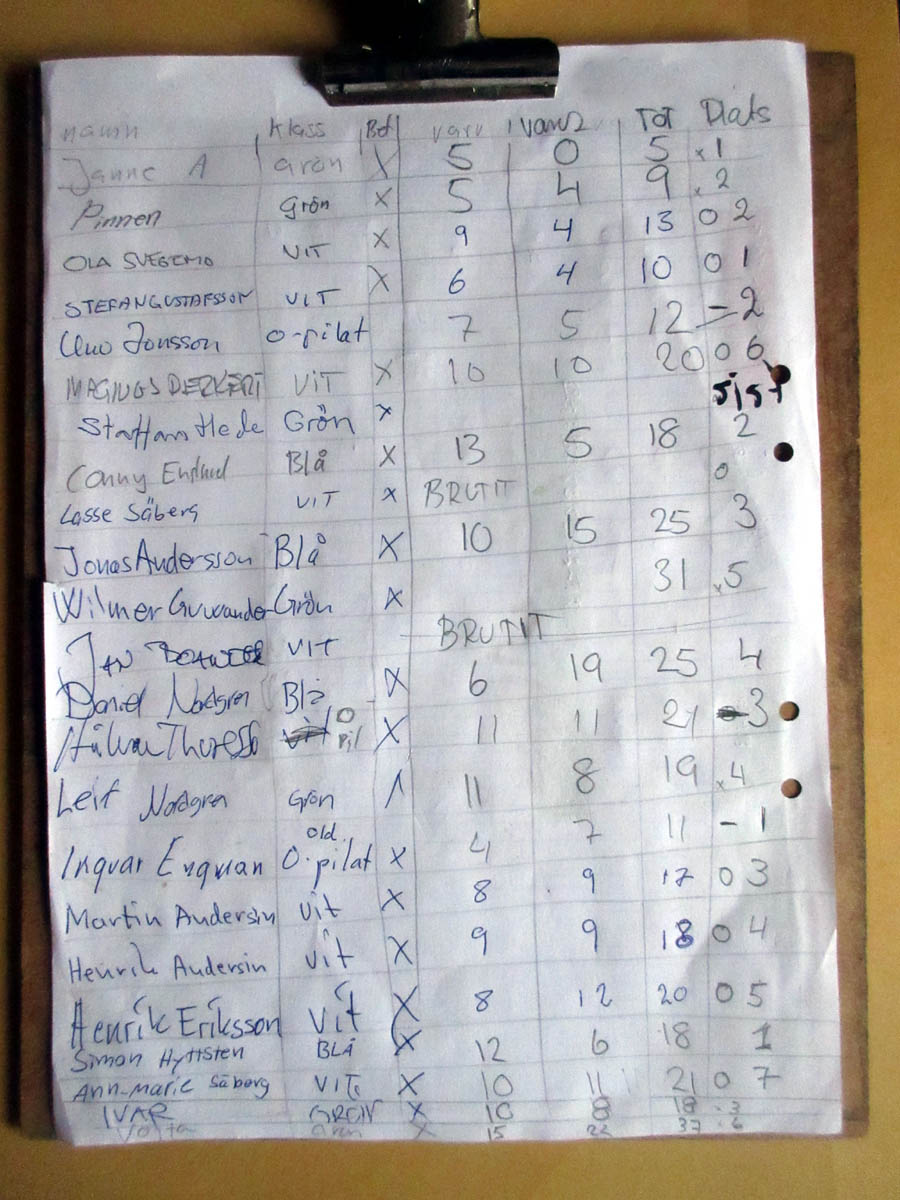 namn klass Bet varv varv2 TOT Plats
Janne A Grön X 5 0 5 x 1
Pinnen Grön X 5 4 9 x 2
OLA SVEGEMO VIT X 9 4 13 0 2
STEFAN GUSTAFSSON VIT X 6 4 10 0 1
Uno Jonsson O-pilat 7 5 12 - 2
MAGNUS DERKERT VIT X 10 10 20 0 6
Staffan Hede Grön X sist
Conny Englund Blå X 13 5 18 2
Lasse Säberg VIT X BRUTIT 0
Jonas Andersson Blå X 10 15 25 3
Wilmer Grön X 31 x 5
JAN VIT BRUTIT
Daniel Nordgren Blå X 6 19 25 4
O pil X 11 11 21 - 3
Leif Nordgren Grön 11 8 19 x 4
Ingvar Enqman Old. O-pilat X 4 7 11 - 1
Martin Andersin Vit X 8 9 17 0 3
Henrik Andersin Vit X 9 9 18 0 4
Henrik Eriksson Vit X 8 12 20 0 5
Simon Hyttsten BLÅ X 12 6 18 1
Ann-Marie Säberg VIT X 10 11 21 0 7
IVAR GRÖN X 10 8 18 x 3
Grön X 15 22 37 x 6